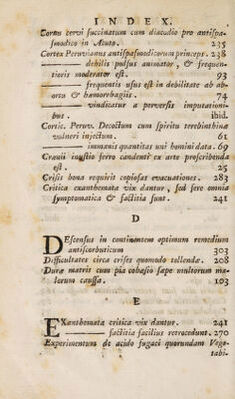 INDEX.
Cornu cervi succinatum cum diacodio pro antispa-
smodico in Acuto. 235
Cortex Peruvianus antispasmodicorum princeps. 238
——— debilis pulsus animator, & frequen-
tioris moderator est. 93
——— frequentis usus est in debilitate ab ab-
orsu & hæmorrhagiis. 74
——— vindicatur a perversis imputationi-
bus. ibid.
Cortic. Peruv. Decoctum cum spiritu terebinthinæ
vulneri injectum. 61
——— immanis quantitas uni homini data. 69
Cranii inustio ferro candenti ex arte proscribenda
est. 25
Crisis bona requirit copiosas evacuationes. 283
Critica exanthemata vix dantur, sed fere omnia
symptomatica & factitia sunt. 241
D
DEscensus in continentem optimum remedium
antiscorbuticum 303
Difficultates circa crises quomodo tollendæ. 208
Duræ matris cum pia cohæsio sæpe multorum ma-
lorum caussa. 103
E
EXanthemata critica vix dantur. 241
——— factitia facilius retrocedunt. 270
Experimentum de acido fugaci quorundam Vege-
tabi-